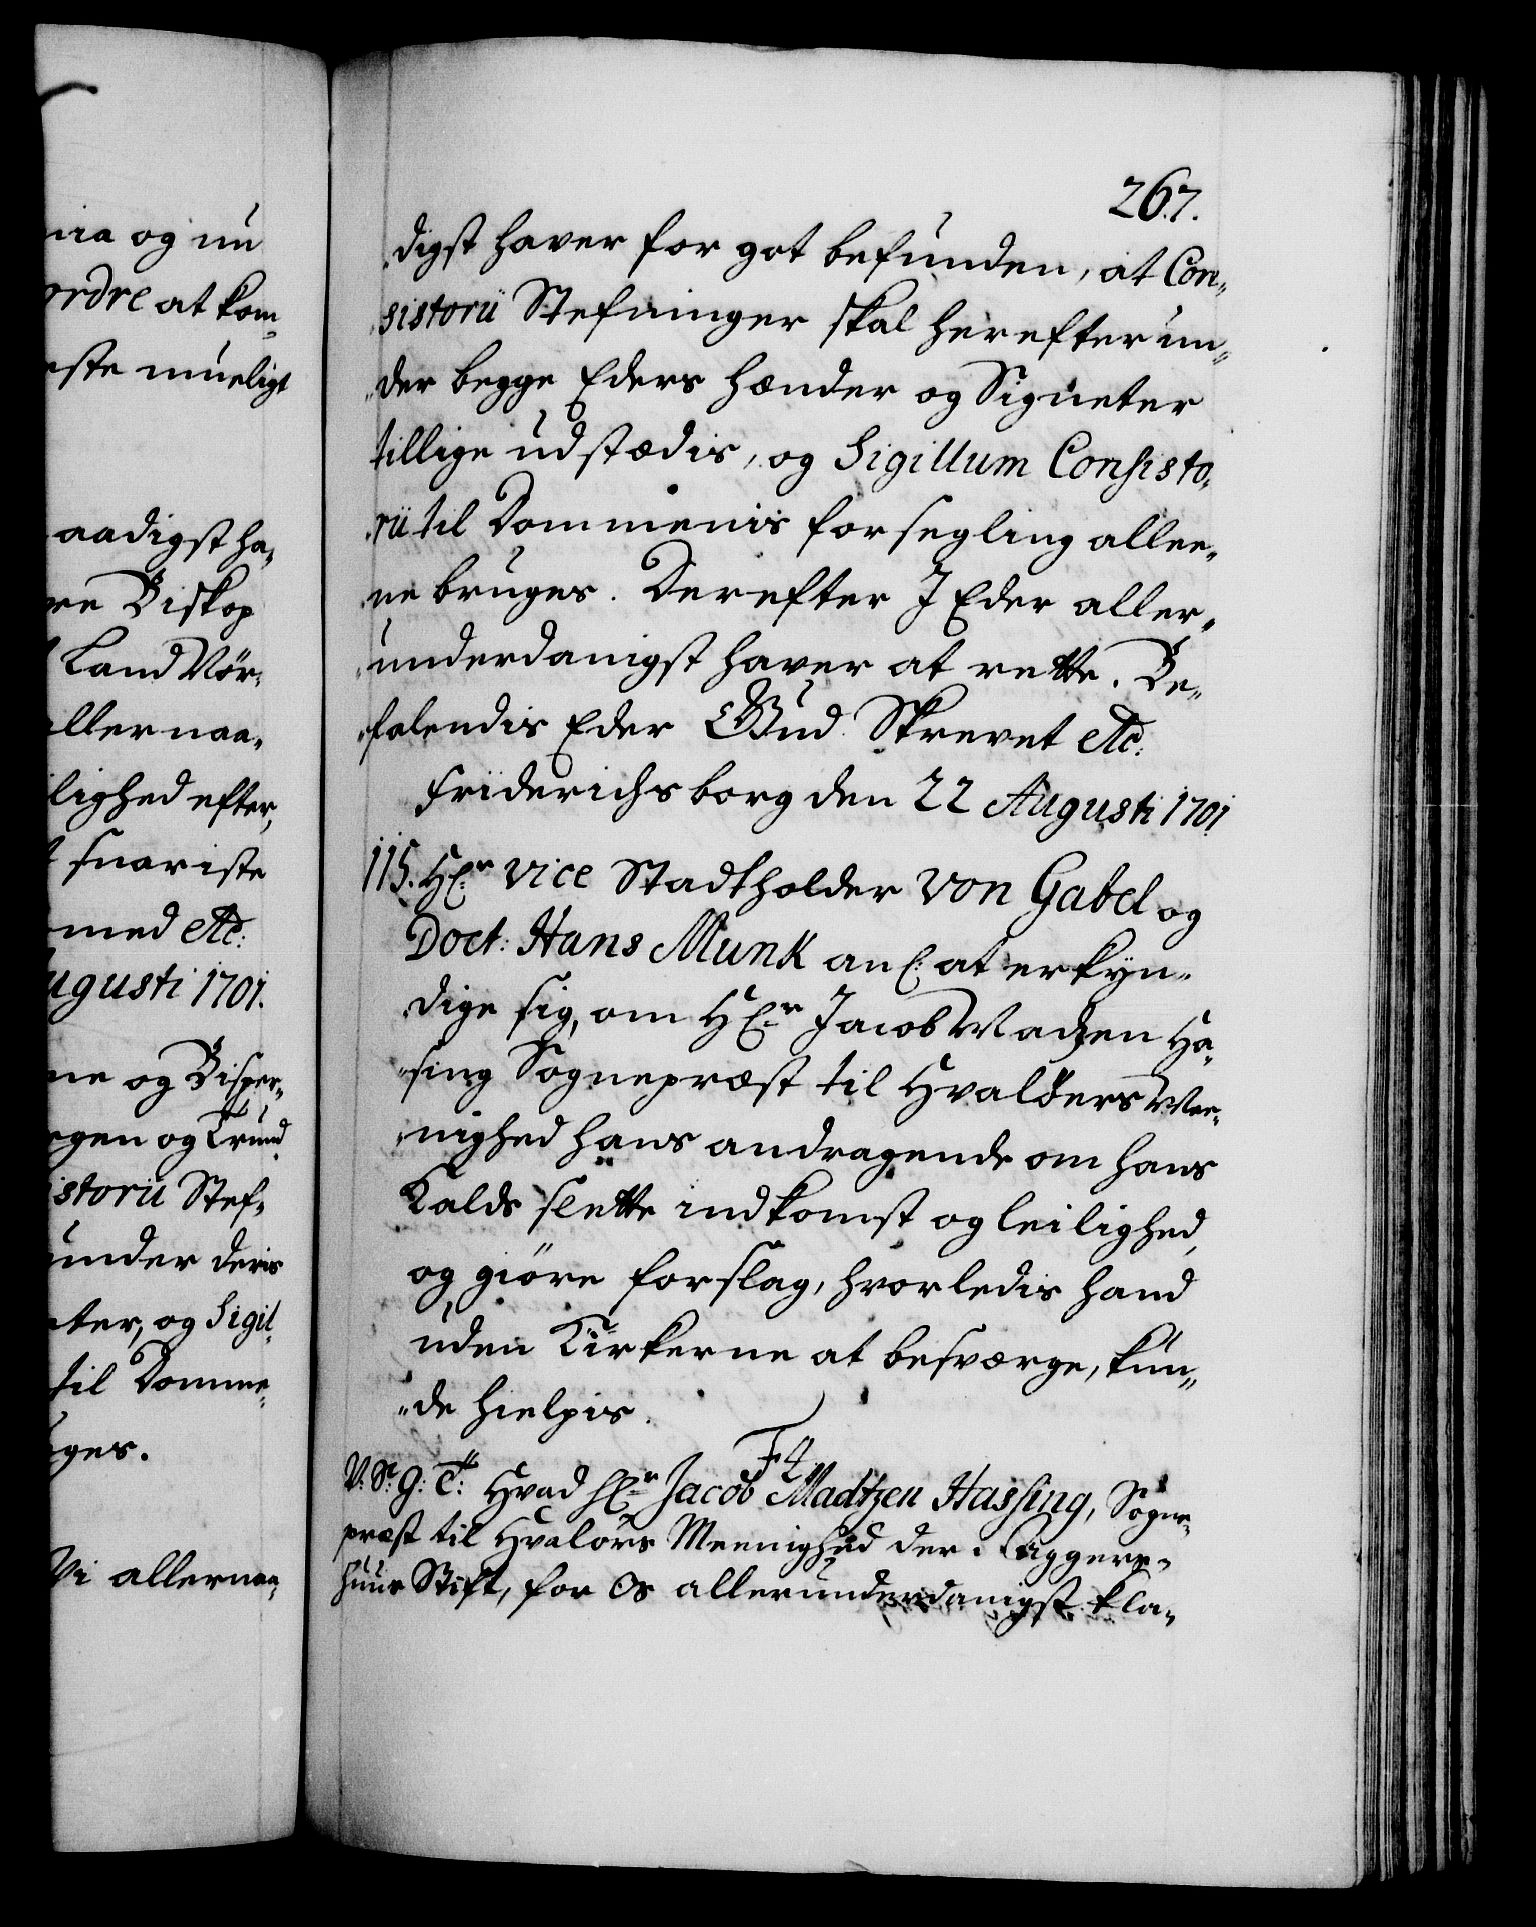 nia og nu
ordre at kom-
este mueligt
aadigst ha-
re Biskop
Land Nør-
aller naa-
lighed efter,
snariste
med etc:
ugusti 1701.
ne og Disper-
egen og Trund
istorii Stef-
under deris
eter, og Sigil-
til Domme-
ges.
Vi allernaa-
267.
digst haver for got befunden, at Con-
sistorii Stefninger skal herefter un-
der begge Eders hænder og Signeter
tillige udstædis, og Sigillum Consisto-
rii til Dommenis forsegling allee-
ne bruges. Derefter I Eder aller-
underdanigst haver at rette. Be-
falendis Eder Gud. Skrevet etc:
Friderichsborg den 22 Augusti 1701
115. Hr. Vice Stadtholder von Gabel og
Doct: Hans Munk anl: at erkyn-
dige sig, om Hr. Jacob Madzen Ha-
sing Sognepræst til Hvaløers Mee-
nighed hans andragende om hans
Kalds slette indkomst og leilighed,
og giøre forslag, hvorledis hand
uden Kirkerne at besværge, kun-
de hielpis.
F4
V. Sr. G: T: Hvad Hr. Jacob Madtzen Hassing, Sogne-
præst til Hvaløes Meenighed der i Aggers-
huus Stift, for Os allerunderdanigst kla-